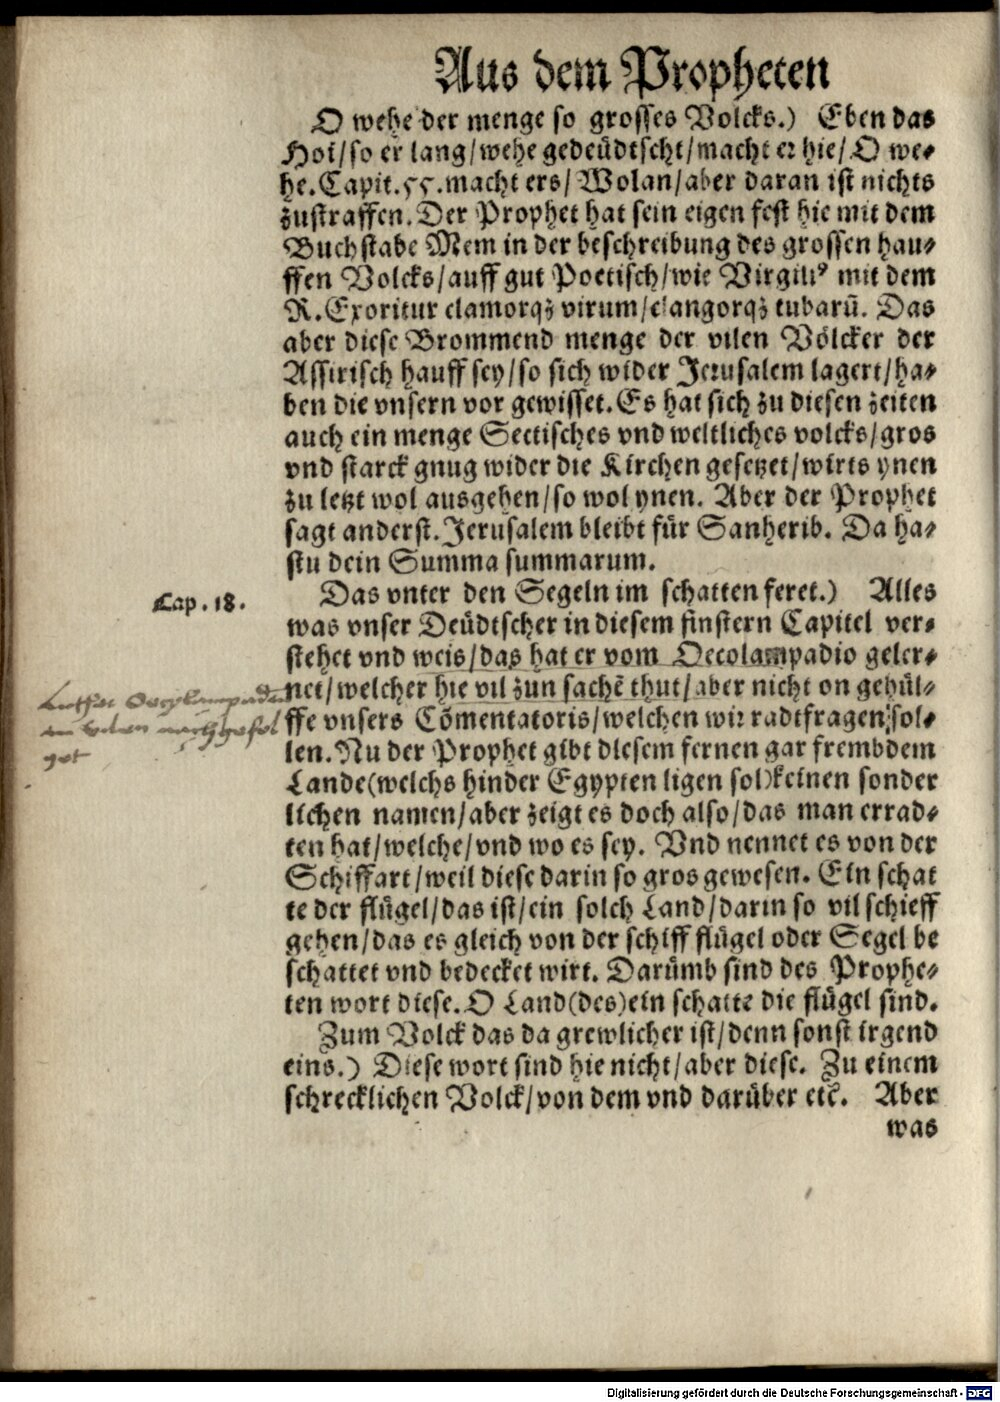 Aus dem Propheten
O wehe der menge so grosses Volcks.) Eben das
Hoi/so er lang/wehe gedeüdtscht/macht er hie/O we-
he. Capit.55.macht ers/Wolan/aber daran ist nichts
zustraffen. Der Prophet hat sein eigen fest hie mit dem
Buchstabe Mem in der beschreibung des grossen hau-
ffen Volcks/auff gut Poetisch/wie Virgiliꝰ mit dem
R. Exoritur clamorqꝫ virum/clangorqꝫ tubarū. Das
aber diese Brommend menge der vilen Völcker der
Assirisch hauff sey/so sich wider Jerusalem lagert/ha-
ben die vnsern vor gewisset. Es hat sich zu diesen zeiten
auch ein menge Sectisches vnd weltliches volcks/gros
vnd starck gnug wider die Kirchen gesetzet/wirts ynen
zu letzt wol ausgehen/so wol ynen. Aber der Prophet
sagt anderst. Jerusalem bleibt für Sanherib. Da ha-
stu dein Summa summarum.
Cap. 18.
Das vnter den Segeln im schatten feret.) Alles
was vnser Deüdtscher in diesem finstern Capitel ver-
stehet vnd weis/das hat er vom Oecolampadio geler-
net/welcher hie vil zun sachē thut/aber nicht on gehül-
ffe vnsers Cōmentatoris/welchen wir radtfragen sol-
len. Nu der Prophet gibt diesem fernen gar frembdem
Lande(welchs hinder Egypten ligen sol)keinen sonder
lichen namen/aber zeigt es doch also/das man errad-
ten hat/welche/vnd wo es sey. Vnd nennet es von der
Schiffart/weil diese darin so gros gewesen. Ein schat
te der flügel/das ist/ein solch Land/darin so vil schieff
gehen/das es gleich von der schiff flügel oder Segel be
schattet vnd bedecket wirt. Darümb sind des Prophe-
ten wort diese. O Land(des)ein schatte die flügel sind.
Zum Volck das da grewlicher ist/denn sonst irgend
eins.) Diese wort sind hie nicht/aber diese. Zu einem
schrecklichen Volck/von dem vnd darüber etc̄. Aber
was
Luther Oecolampadio
in vielen nachgefol
get
Digitalisierung gefördert durch die Deutsche Forschungsgemeinschaft - DFG